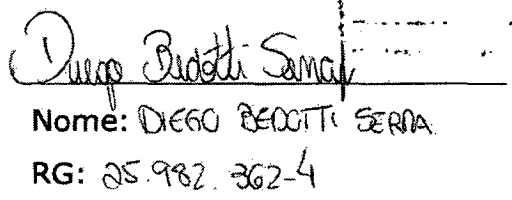 Diego Bedotti Serra
Nome: DIEGO BEDOTTI SERRA
RG: 25.982.362-4